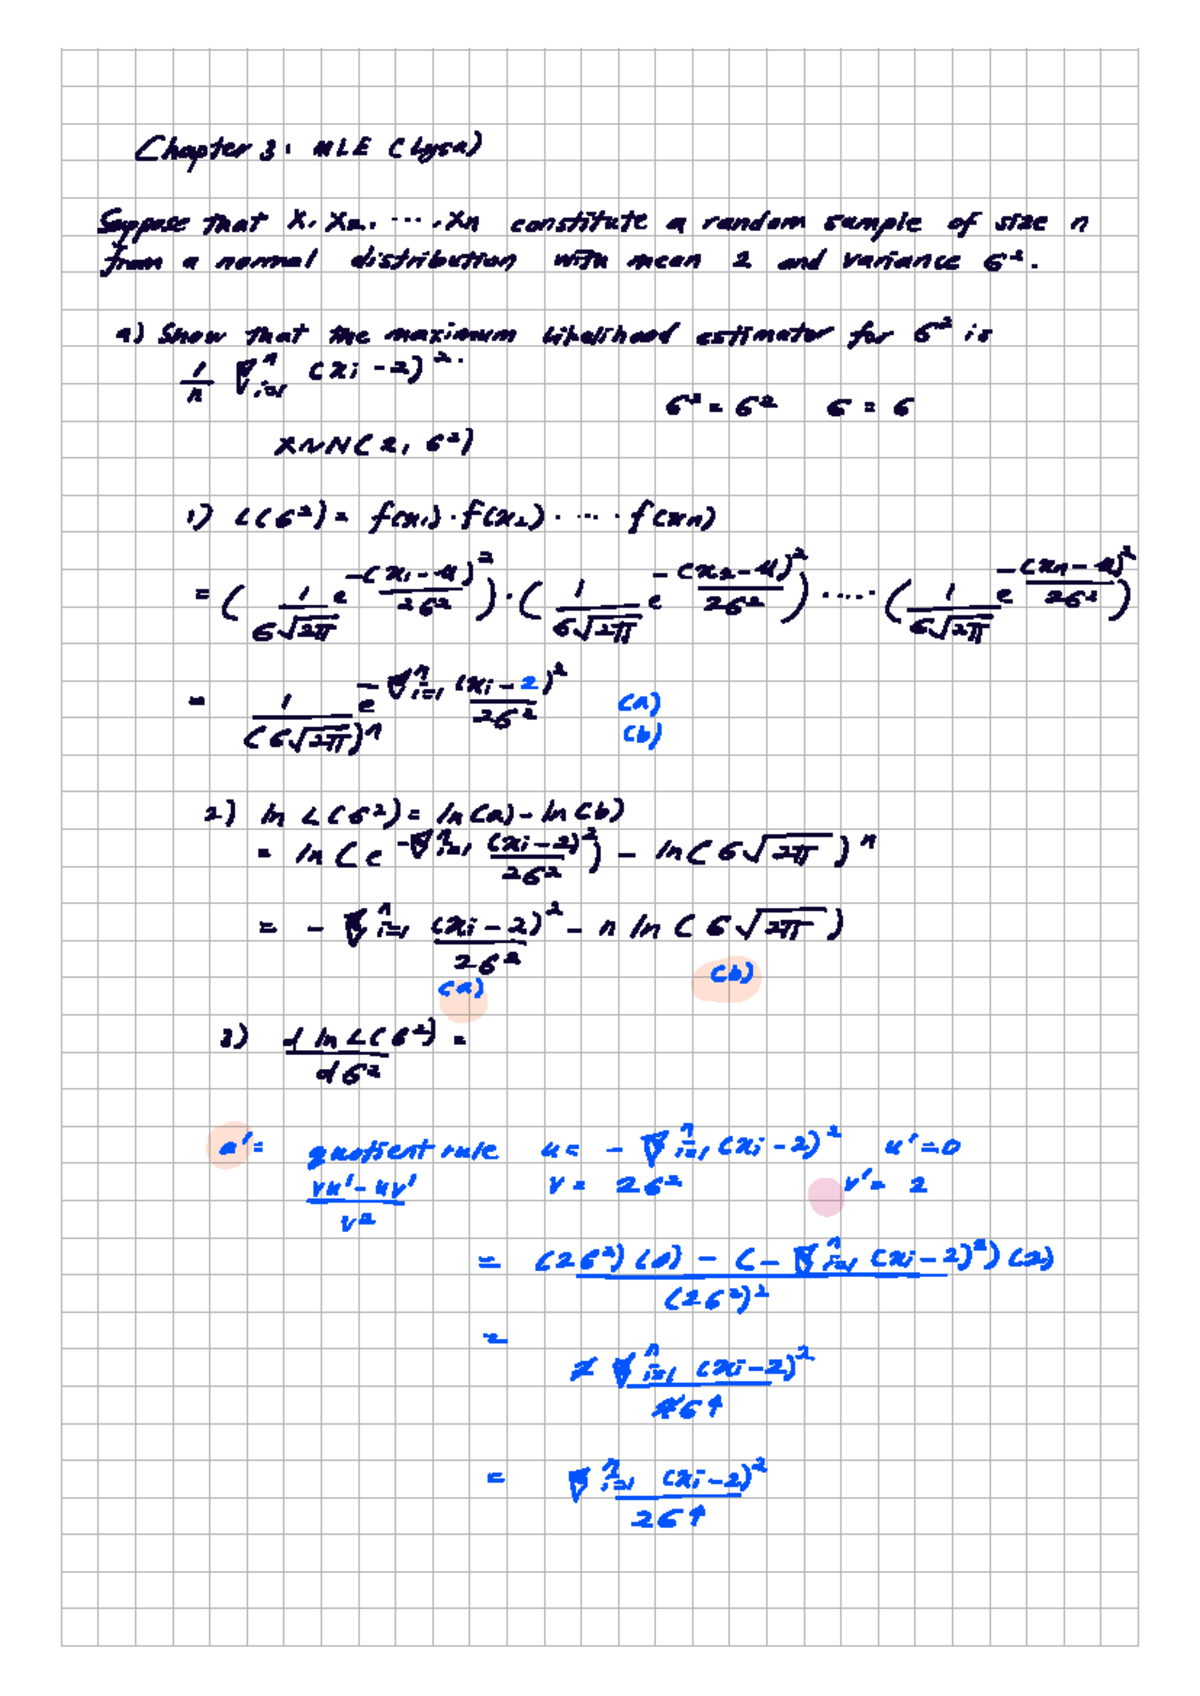 Chapter 3: MLE (Lysa)
Suppose that X, X2, ..., Xn constitute a random sample of size n
from a normal distribution with mean 2 and variance σ².
a) Show that the maximum likelihood estimator for σ² is
1/n ∑ⁿᵢ₌₁ (xi - 2)².
σ² = σ² σ = σ
X~N(2, σ²)
1) L(σ²) = f(x1) · f(x2) · ... · f(xn)
= (1/(σ√2π) e^(-(x1-μ)²/2σ²)) · (1/(σ√2π) e^(-(x2-μ)²/2σ²)) ..... (1/(σ√2π) e^(-(xn-μ)²/2σ²))
= 1/(σ√2π)ⁿ e^(-∑ⁿᵢ₌₁ (xi-2)²/2σ²) (a)
(b)
2) ln L(σ²) = ln(a) - ln(b)
= ln(e^(-∑ⁿᵢ₌₁ (xi-2)²/2σ²)) - ln(σ√2π)ⁿ
= - ∑ⁿᵢ₌₁ (xi-2)²/2σ² - n ln(σ√2π)
(a) (b)
3) d ln L(σ²)/dσ² =
a' = quotient rule u = - ∑ⁿᵢ₌₁ (xi-2)² u' = 0
vu' - uv'/v² v = 2σ² v' = 2
= (2σ²)(0) - (-∑ⁿᵢ₌₁ (xi-2)²)(2)/(2σ²)²
= 2 ∑ⁿᵢ₌₁ (xi-2)²/4σ⁴
= ∑ⁿᵢ₌₁ (xi-2)²/2σ⁴